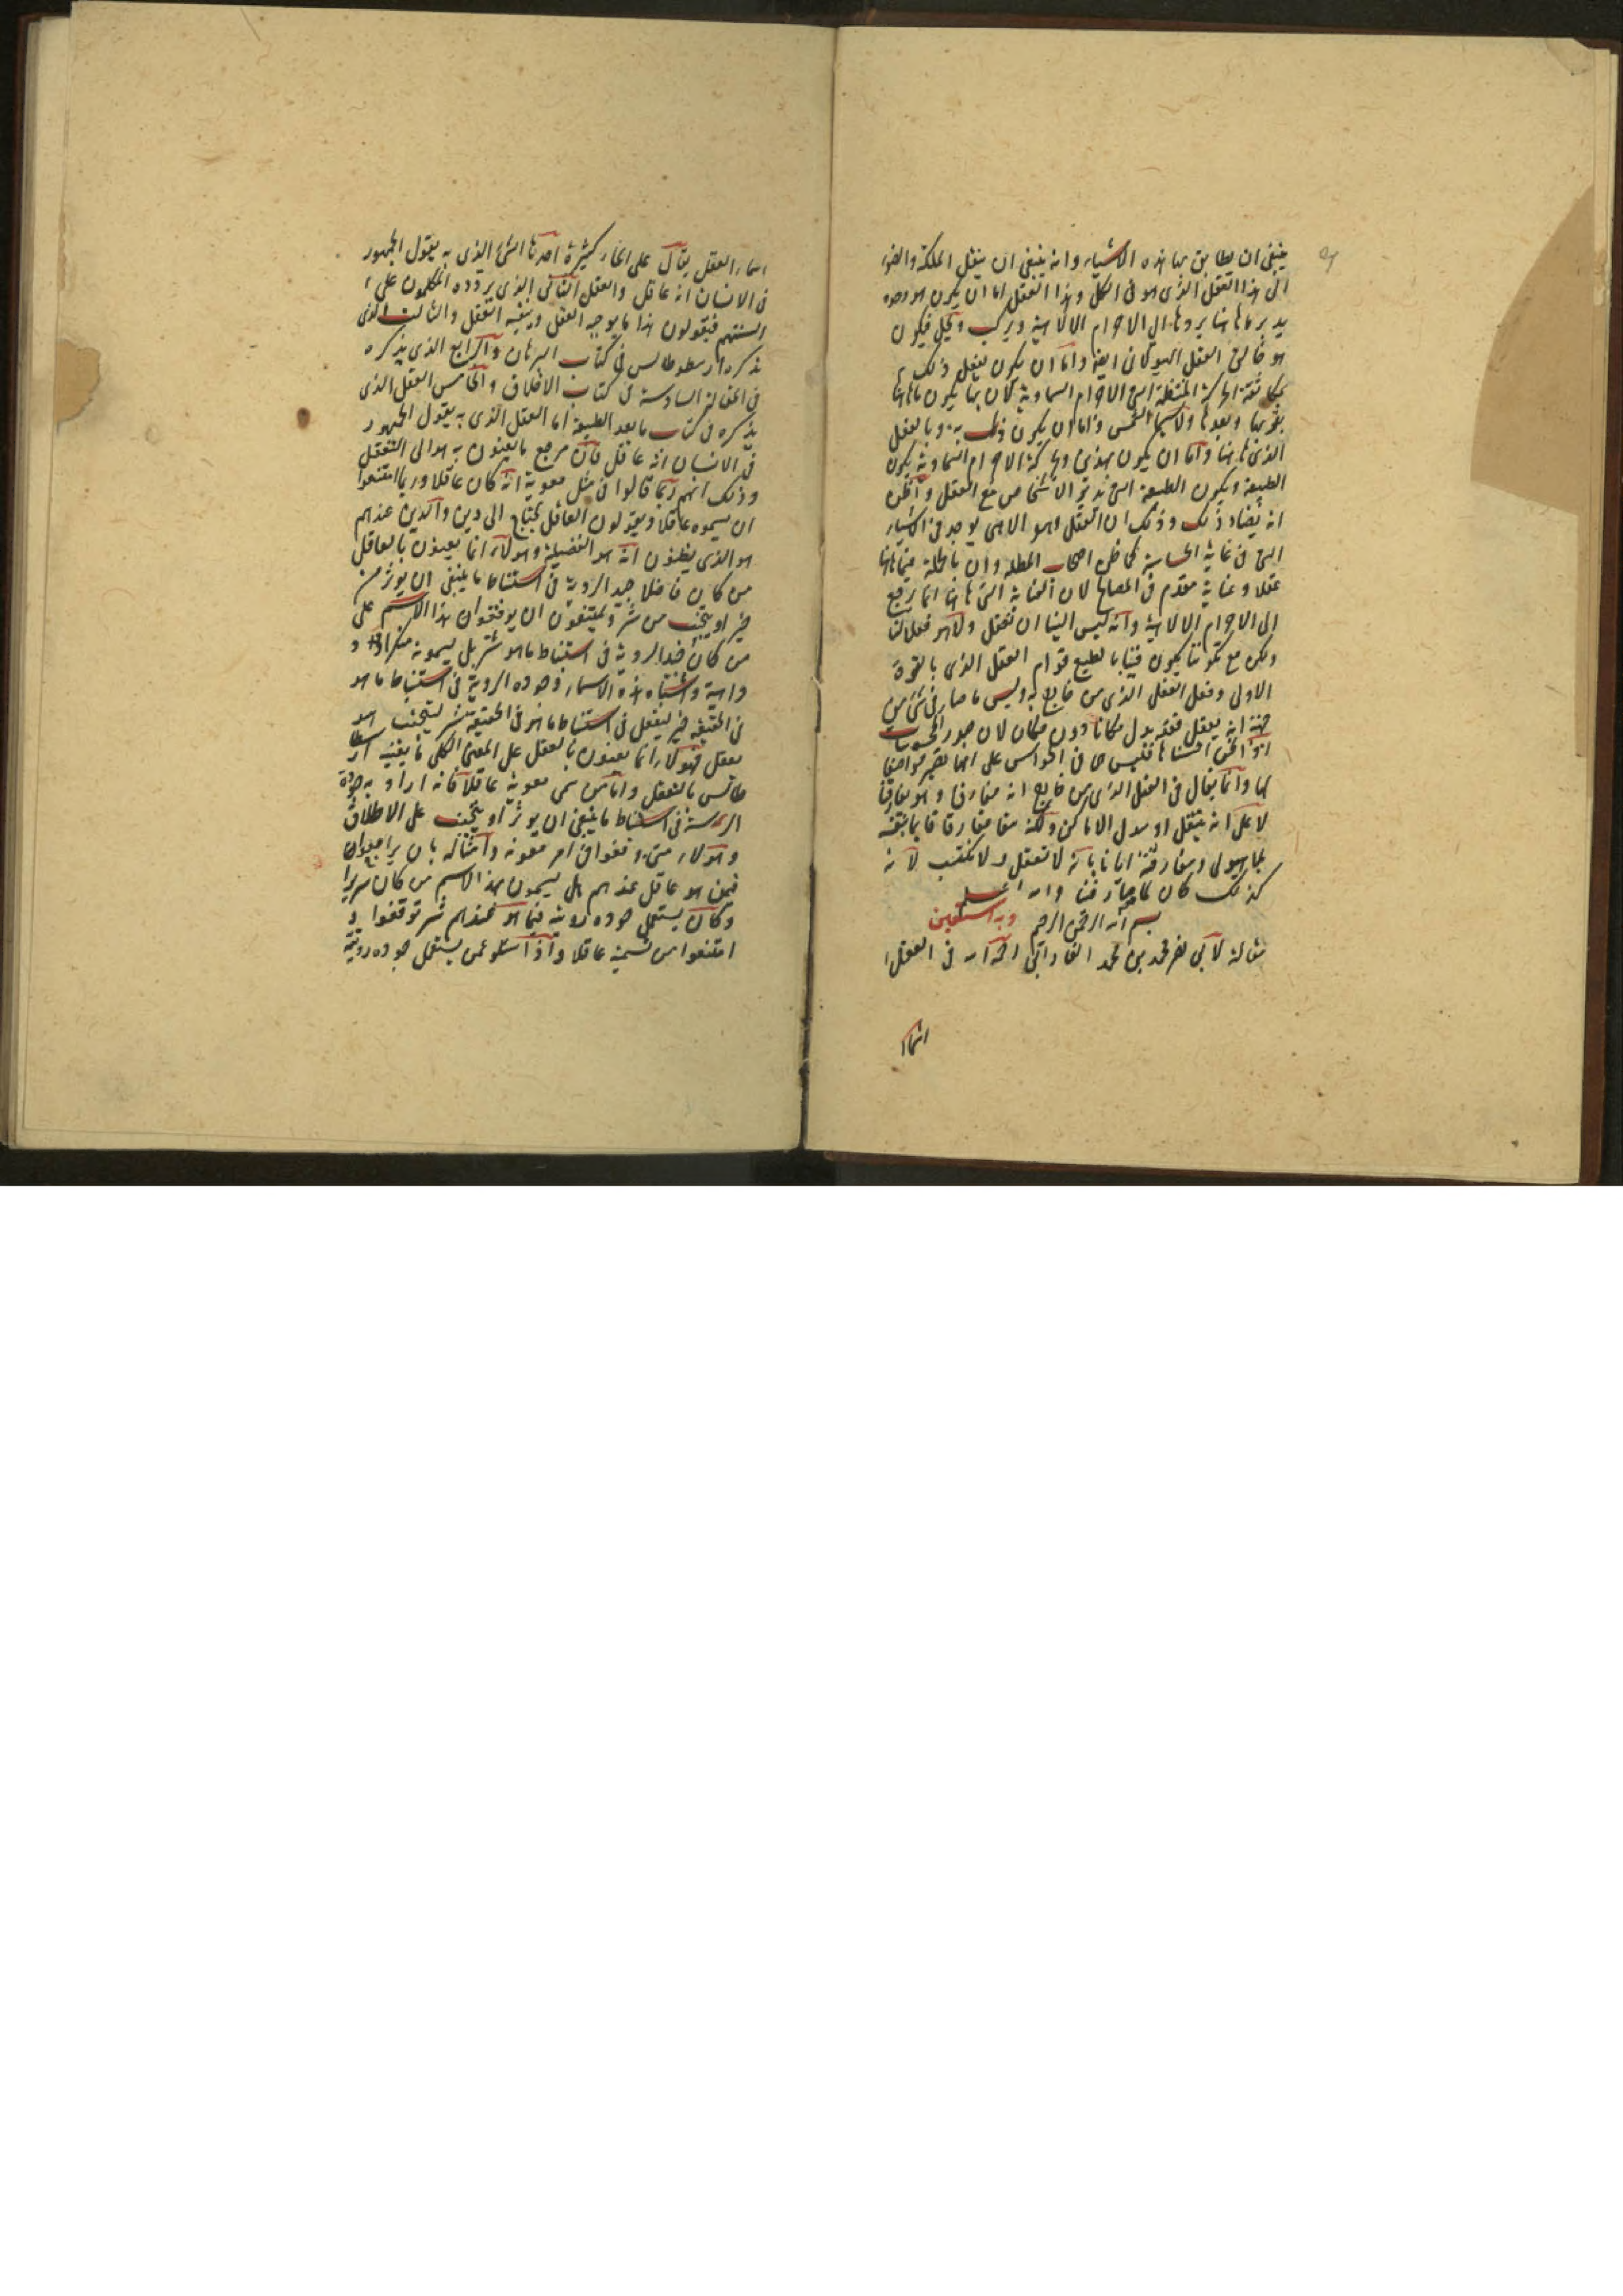 ينبغى ان يطابق بها هذه الاشياء وانه ينبغى ان ينقل الملكة والضوء
الى هذا العقل الذى هو فى الكل وهذا العقل اما ان يكون هو وحده
يدبر ما هاهنا بردها الى الاجرام الالاهية ويركب ويحل فيكون
هو خالق العقل الهيولانى ايضا واما ان يكون يفعل ذلك
الحركة المنتظمة التى الاجرام السماوية لان بها يكون ما هاهنا
بقربها وبعدها ولاسيما الشمس واما ان يكون ذلك به وبالعقل
الذى هاهنا واما ان يكون بهذين وبحركة الاجرام السماوية يكون
الطبيعة ويكون الطبيعة التى تدبر الاشخاص مع العقل واظن
انه يضاد ذلك وذلك ان العقل وهو الاهى يوجد فى اشياء
التى فى غاية الخساسة كما ظن اصحاب المظلة وان بالجملة فيما هاهنا
عقلا وعناية مقدم فى المصالح لان العناية التى هاهنا انما ترجع
الى الاجرام الالاهية وانه ليس الينا ان نعقل ولا هو فعل لنا
ولكن مع تكوننا يكون فينا بالطبع قوام العقل الذى بالقوة
الاولى وفعل العقل الذى من خارج به وليس ما صار فى شئ من
جهة انه يعقل فقد بدل مكانا دون مكان لان صور المحسوسات
اذا نحن احسسناها فليس هى فى الحواس على انها تصير مواضع
لها وانما يقال فى العقل الذى من خارج انه مفارق وهو يفارقنا
لا على انه ينتقل او يبدل الاماكن ولكنه يبقا مفارقا قائما بنفسه
بلا هيولى ومفارقته ايانا بانه لا نعقل ولا نكتسب لانه
كذلك كان لما صار فينا والله اعلم
بسم الله الرحمن الرحيم وبه استعين
مقالة لابى نصر محمد بن محمد الفارابى رحمه الله فى العقل
اسماء
اسماء العقل يقال على انحاء كثيرة احدها الشئ الذى به يقول الجمهور
فى الانسان انه عاقل والعقل الثانى الذى يردده المتكلمون على
السنتهم فيقولون هذا ما يوجبه العقل وينفيه العقل والثالث الذى
يذكره ارسطوطالس فى كتاب البرهان والرابع الذى يذكره
فى المقالة السادسة فى كتاب الاخلاق والخامس العقل الذى
يذكره فى كتاب ما بعد الطبيعة اما العقل الذى به يقول الجمهور
فى الانسان انه عاقل فان مرجع ما يعنون به هو الى التعقل
وذلك انهم ربما قالوا فى مثل معوية انه كان عاقلا وربما امتنعوا
ان يسموه عاقلا ويقولون العاقل يحتاج الى دين والدين عندهم
هو الذى يظنون انه هو الفضيلة وهولاء انما يعنون بالعاقل
من كان فاضلا جيد الروية فى استنباط ما ينبغى ان يوثر من
خير او يتجنب من شر ويمتنعون ان يوقعوا هذا الاسم على
من كان جيد الروية فى استنباط ما هو شر بل يسمونه منكرا او
داهية واشباه هذه الاسماء وجوده الروية فى استنباط ما هو
فى الحقيقة خير ليفعل فى استنباط ما هو فى الحقيقة شر ليتجنب هو
تعقل فهولاء انما يعنون بالعقل على المعنى الكلى ما يعنيه ارسطو
طالس بالتعقل واما من سمى معوية عاقلا فانه اراد به جودة
الروية فى استنباط ما ينبغى ان يوثر او يتجنب على الاطلاق
وهولاء متى وقفوا فى امر معوية وامثاله بان يراجعوا
فيمن هو عاقل عندهم هل يسمون بهذا الاسم من كان شريرا
وكان يستعمل جوده رويته فيما هو عندهم شر توقفوا و
امتنعوا من تسميته عاقلا واذا سئلوا عمن يستعمل جوده رويته